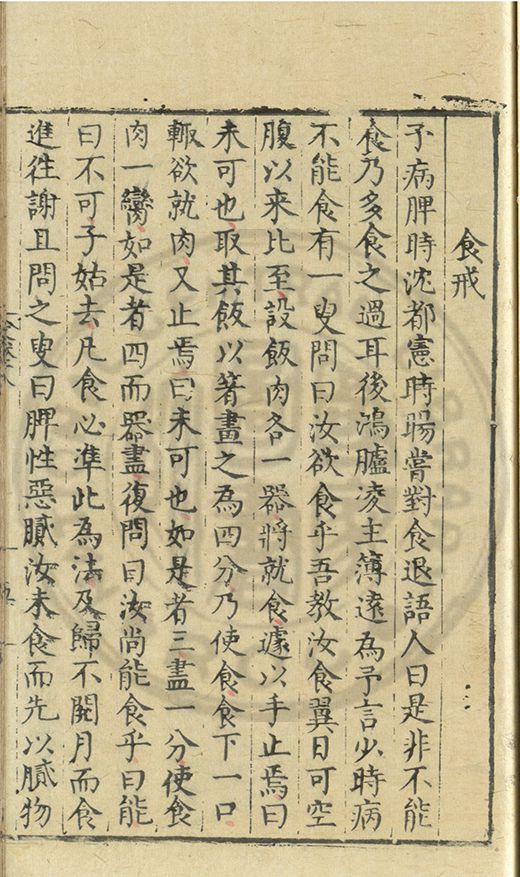 食戒
予病脾時沈都憲時暘嘗對食退語人曰是非不能
食乃多食之過耳後鴻臚凌主簿遠為予言少時病
不能食有一叟問曰汝欲食乎吾教汝食翼日可空
腹以来比至設飯肉各一器將就食遽以手止焉曰
未可也取其飯以箸畫之為四分乃使食食下一口
輙欲就肉又止焉曰未可也如是者三盡一分使食
肉一臠如是者四而器盡復問曰汝尚能食乎曰能
曰不可子姑去凡食必準此為法及歸不閱月而食
進往謝且問之叟曰脾性惡膩汝未食而先以膩物